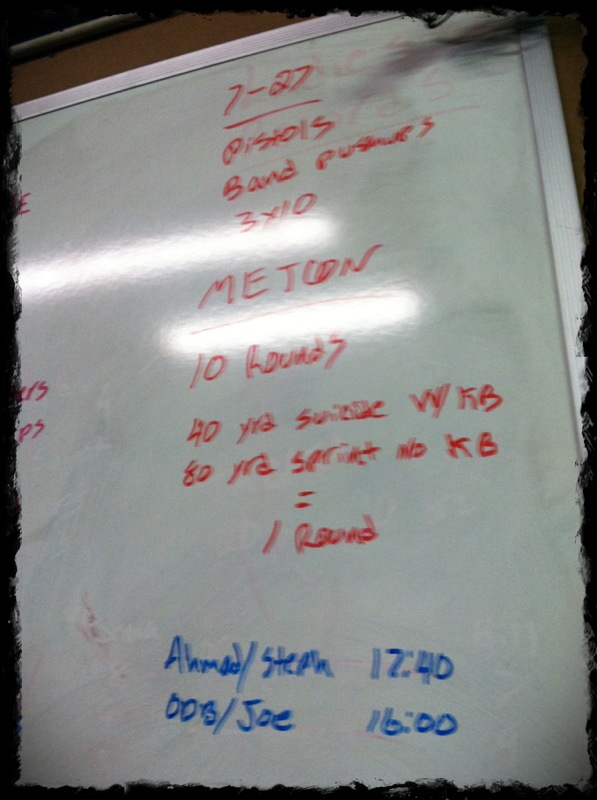 7-27
Pistols
Band pushups
3x10
METCON
10 Rounds
40 yrd suicide W/ KB
80 yrd sprint no KB
=
1 Round
Ahmad/Steph 12:40
ODB/Joe 16:00
E
ers
ps